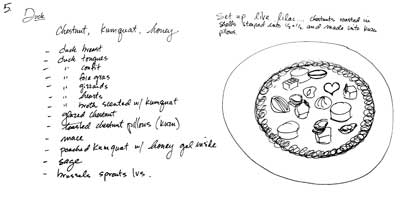 5.
Duck
Chestnut, Kumquat, honey
- duck breast
- duck tongues
- " confit
- " foie gras
- " gizzards
- " hearts
- " broth scented w/ kumquat
- glazed chestnut
- toasted chestnut pillows (kuzu)
- mace
- poached kumquat w/ honey gel inside
- sage
- brussels sprouts lvs.
Set up like lilac... chestnuts roasted in
shells steeped into 1/2 + 1/2 and made into kuzu
pillows